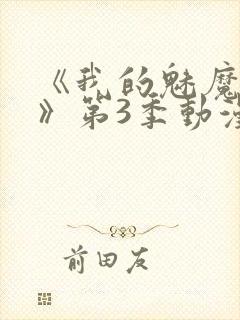 《我的魅魔
》第3季動漫
前田友